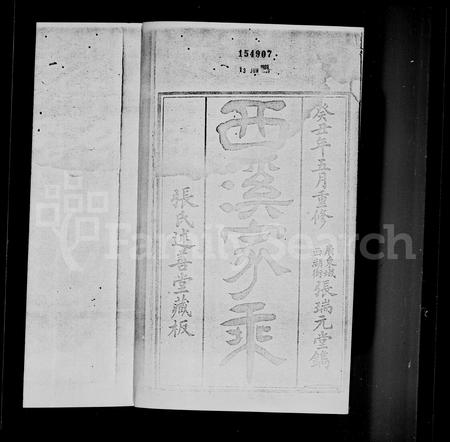 154907
13 JUN
癸丑年五月重修
廣東城
西湖街
張瑞元堂鐫
西溪家乘
張氏述善堂藏板
FamilySearch